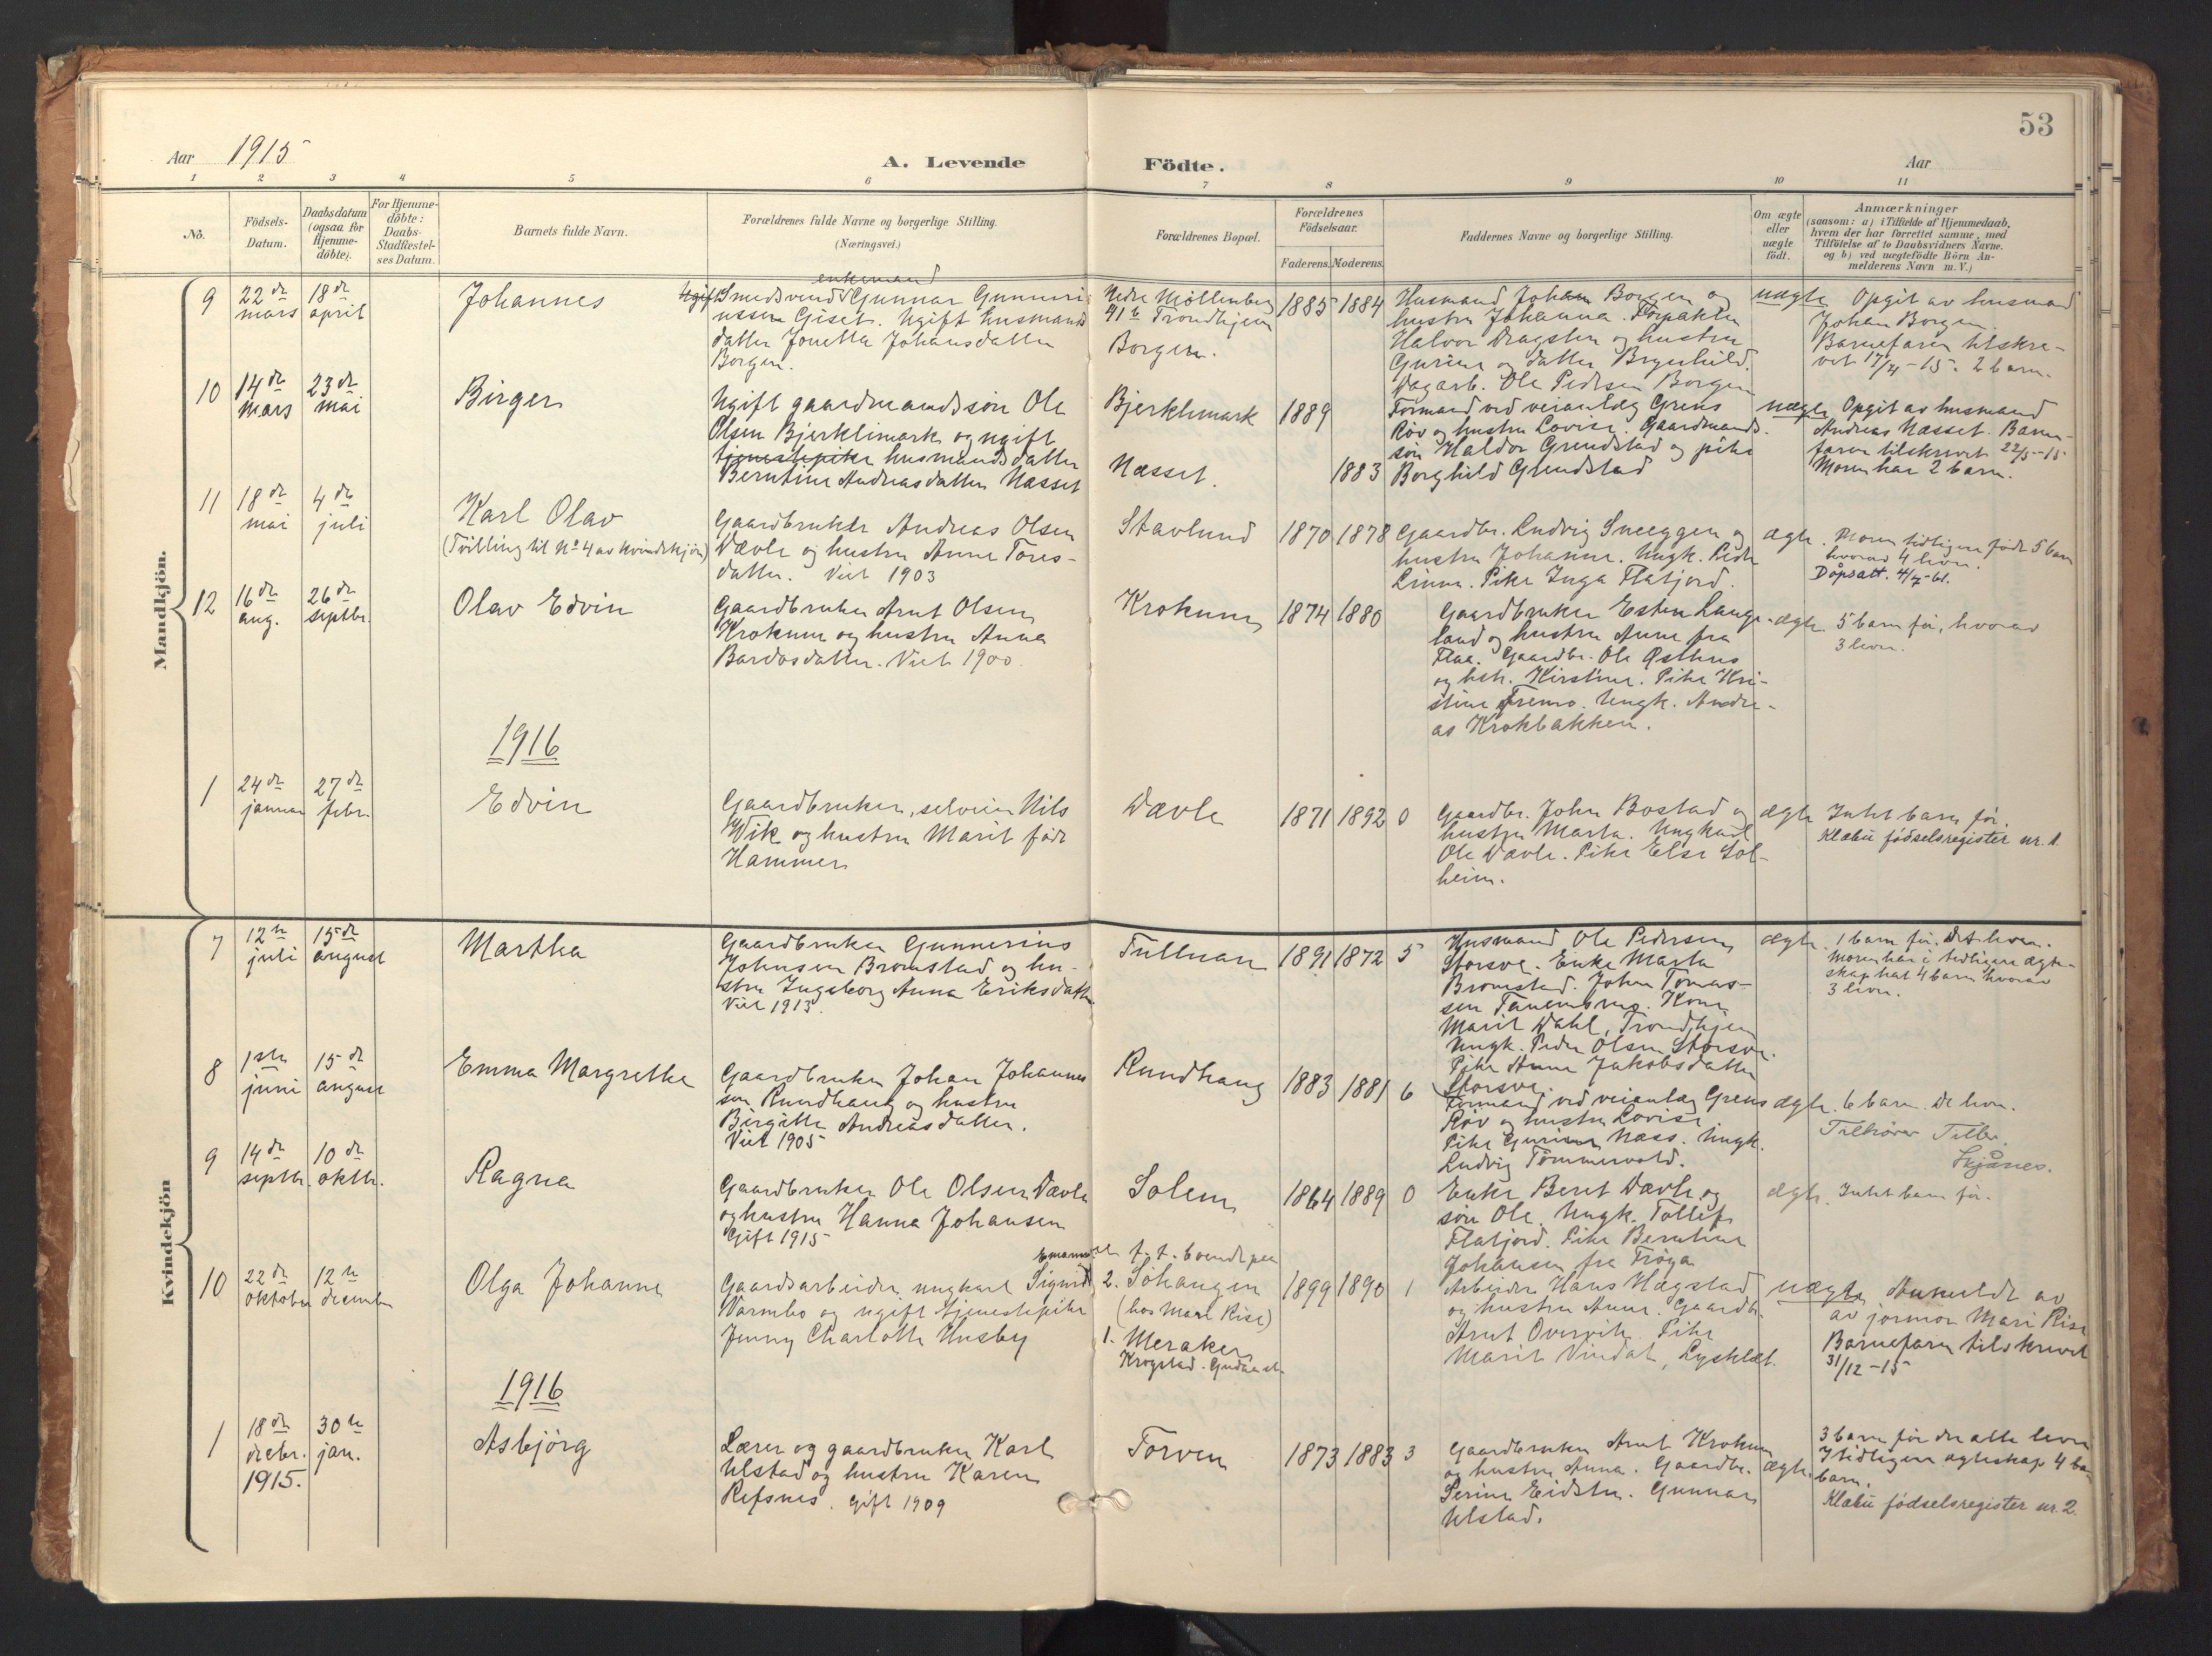 53
Aar 1915
A. Levende Födte.
Aar
1 2 3 4 5 6 7 8 9 10 11
No.
Födsels-
Datum.
Daabsdatum
(ogsaa for
Hjemme-
döbte).
For Hjemme-
döbte:
Daabs-
Stadfæstel-
ses Datum.
Barnets fulde Navn.
Forældrenes fulde Navne og borgerlige Stilling.
(Næringsvei.)
Forældrenes Bopæl.
Forældrenes
Födselsaar.
Faderens. Moderens.
Faddernes Navne og borgerlige Stilling.
Om ægte
eller
uægte
födt.
Anmærkninger
(saasom: a) i Tilfælde af Hjemmedaab,
hvem der har forrettet samme, med
Tilföielse af to Daabsvidners Navne.
og b) ved uægtefödte Börn An-
melderens Navn m. V.)
Mandkjön.
9
22de
mars
18de
april
Johannes
enkemand
Smedsvend Gunnar Gunneri
ussen Gjiset. Ugift husmands
datter Jonetta Johansdatter
Borgen.
Nedre Möllenberg
41b Trondhjem
Borgen.
1885 1884
Husmand Johan Borgen og
hustru Johanna. Forpakter
Halvor Dragsten og hustru
Gurine og datter Brynhild.
Dagarb. Ole Pedersen Borgen
uægte
Opgit av husmand
Johan Borgen.
Barnefaren tilskre-
vet 17/4-15. 2 barn.
10
14de
mars
23de
mai
Birger
Ugift gaardmandssön Ole
Olsen Bjerklimark og ugift
tjenestepike husmandsdatter
Berntine Andreasdatter Næsset
Bjerklimark
Næsset.
1889
1883
Formand ved veianlæg Grens
Röv og hustru Lovise. Gaardmands-
sön Haldor Grendstad og pike
Borghild Grendstad
uægte
Opgit av husmand
Andreas Næsset. Barne-
faren tilskrevet 22/5-15
Moren har 2 barn.
11
18de
mai
4de
juli
Karl Olav
(Tvilling til No 4 av kvindekjön)
Gaardbruker Andreas Olsen
Dævle og hustru Anne Tores-
datter. Viet 1903
Stavlund
1870 1878
Gaardbr. Ludvig Sneeggen og
hustru Johanne. Ungk. Peder
Linne. Pike Inga Flatjord.
ægte.
Moren tidligere födt 5 barn
hvorav 4 lever.
Dåpsatt. 4/7-61.
12
16de
aug.
26de
septbr.
Olav Edvin
Gaardbruker Arnt Olsen
Krokum og hustru Anna
Bardosdatter. Viet 1900.
Krokum
1874 1880
Gaardbruker Esten Lange-
land og hustru Anne fra
Flaa. Gaardbr. Ole Østhus
og hstr. Kirstine. Pike Kri-
stine Fremo. Ungk. Andre-
as Krokbakken.
ægte.
5 barn för, hvorav
3 lever.
1916
1
24de
januar
27de
febr.
Edvin
Gaardbruker, selveier Nils
Wik og hustru Marit födt
Hammer
Dævle
1871 1892 0
Gaardbr. John Bostad og
hustru Marta. Ungkarl
Ole Dævle. Pike Else Sol-
heim.
ægte
Intet barn för.
Klæbu födselsregister nr. 1.
Kvindekjön
7
12te
juli
15de
august
Martha
Gaardbruker Gunnerius
Johnsen Bromstad og hu-
stru Ingeborg Anna Eriksdatter
Viet 1913.
Tulluan
1891 1872 5
Husmand Ole Pedersen
Storsve. Enke Marta
Bromstad. John Tomas-
sen Tanemsmo. Kone
Marit Dahl, Trondhjem
Ungk. Peder Olsen Storsve.
Pike Anne Jakobsdatter
Storsve.
ægte.
1 barn för. Det lever.
Moren har i tidligere ægte-
skap hat 4 barn hvorav
3 lever.
8
1ste
juni
15de
august
Emma Margrethe
Gaardbruker Johan Johannes
sen Rundhaug og hustru
Birgitte Andreasdatter.
Viet 1905
Rundhaug
1883 1881 6
Formand ved veianlæg Grens
Röv og hustru Lovise
Pike Gurine Næss. Ungk.
Ludvig Tömmervold.
ægte.
6 barn. De lever.
Tilhörer Tiller.
Skjånes.
9
14de
septbr.
10de
oktbr.
Ragna
Gaardbruker Ole Olsen Dævle
og hustru Hanna Johansen
Gift 1915
Solem
1864 1889 0
Enke Beret Dævle og
sön Ole. Ungk. Tollef
Flatjord. Pike Berntine
Johansen fra Fröya
ægte.
Intet barn för.
10
22de
oktober
12te
december
Olga Johanne
Gaardsarbeider, ungkarl Sigurd
Varmbo og ugift tjenestepike
Jenny Charlotte Husby
f. t. boende paa
2.
(hos Mari Rise)
1. Meraker
Krogstad.
1899 1890 1
Arbeider Hans Hagstad
og hustru Anne. Gaardbr.
Arnt Overvik. Pike
Marit Vindal, Lysklæt.
uægte
Anmeldt av
av jormor Mari Rise
Barnefaren tilskrevet
31/12-15
1916
1
18de
decbr.
1915.
30te
jan.
Asbjörg
Lærer og gaardbruker Karl
Ulstad og hustru Karen
Refsnes. Gift 1909
Torven
1873 1883 3
Gaardbruker Arnt Krokum
og hustru Anna. Gaardbr.
Perine Eidstu. Gunnar
Ulstad.
ægte.
3 barn för der alle lever
I tidligere ægteskap 4 ba
barn.
Klæbu födselsregister nr. 2.